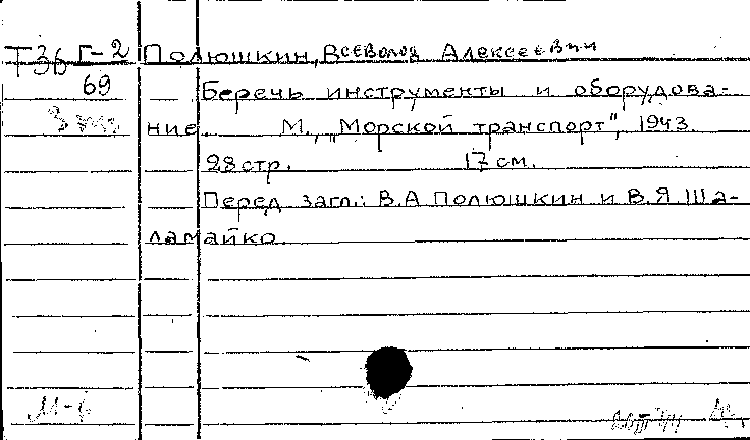 Т36 Г-2 Полюшкин, Всеволод Алексеевич
69 Беречь инструменты и оборудова-
ние. М., „Морской транспорт", 1943.
28 стр. 17 см.
Перед загл.: В.А Полюшкин и В.Я Ша-
ламайко.